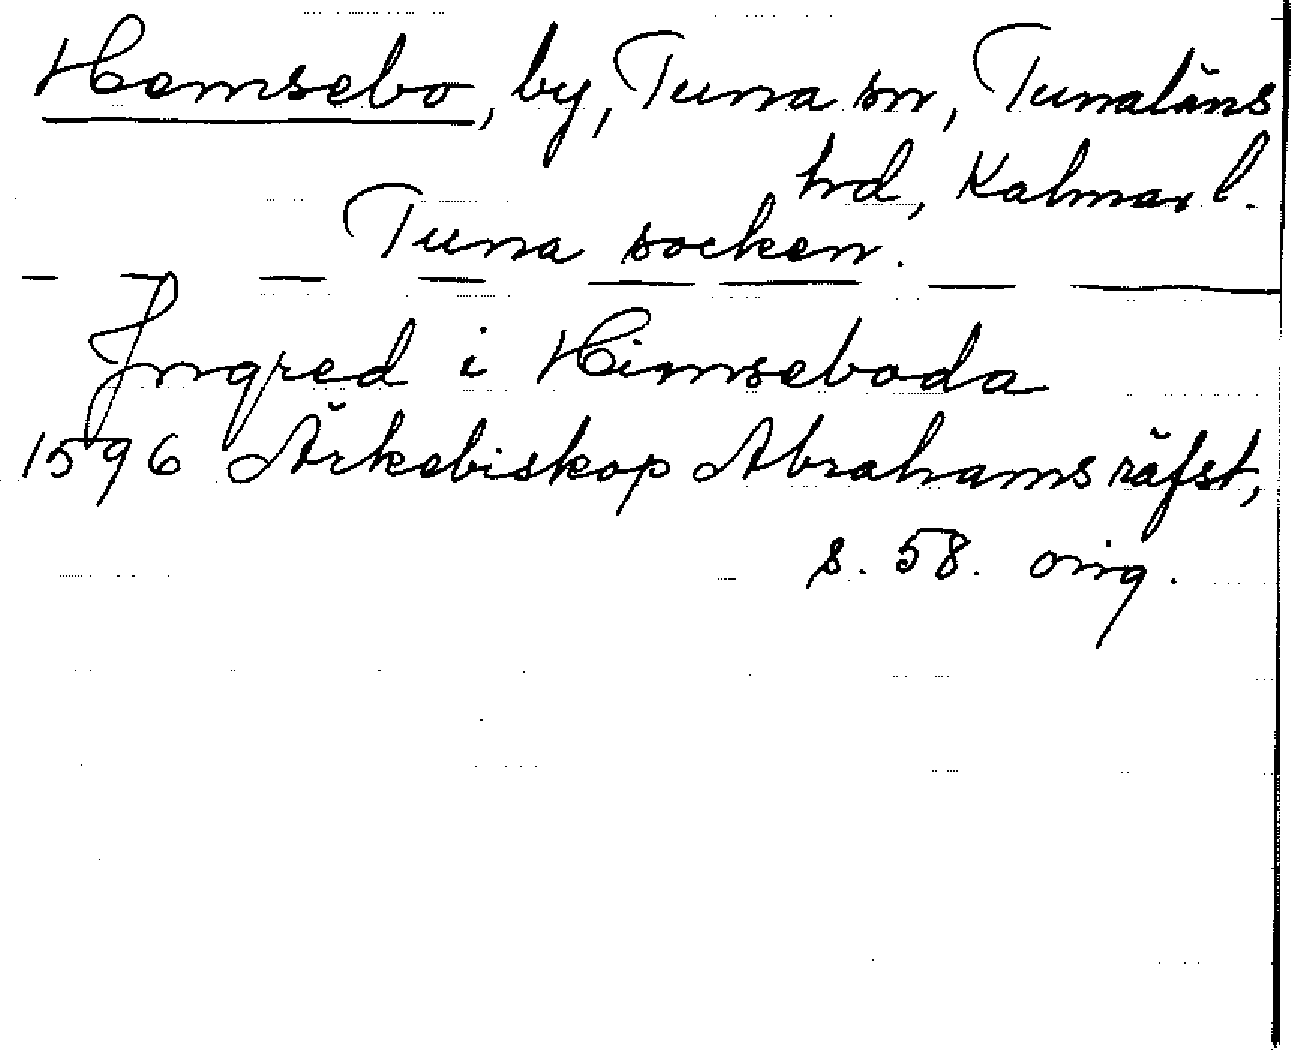 Hemsebo, by, Tuna sn, Tunaläns
hd, Kalmar l.
Tuna socken.
Jngred i Himseboda
1596 Ärkebiskop Abrahams räfst,
s. 58. orig.